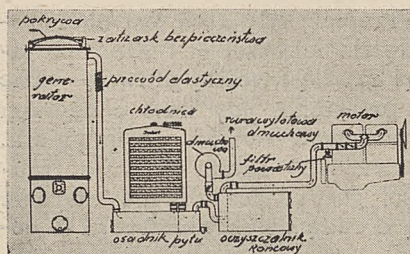 pokrywa
zatrzask bezpieczeństwa
gene-
rator
przewód elastyczny
chłodnica
dmucha
wa
rura wylotowa
dmuchawy
motor
filtr
pozostały
osadnik pyłu
oczyszczalnik
końcowy